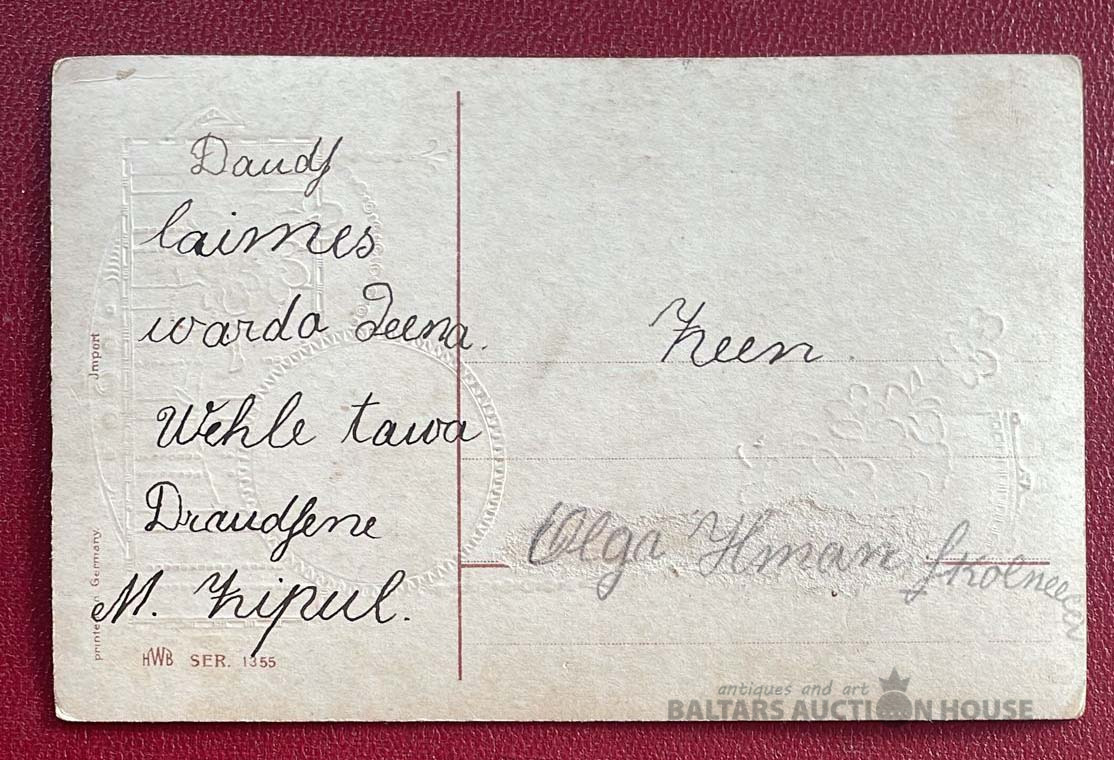 Daudſ
laimes
warda Deena.
Wehle tawa
Draudſene
M. Zipul.
Zeen.
Olga
Import
printed in Germany
HWB SER. 1355
antiques and art
BALTARS AUCTION HOUSE